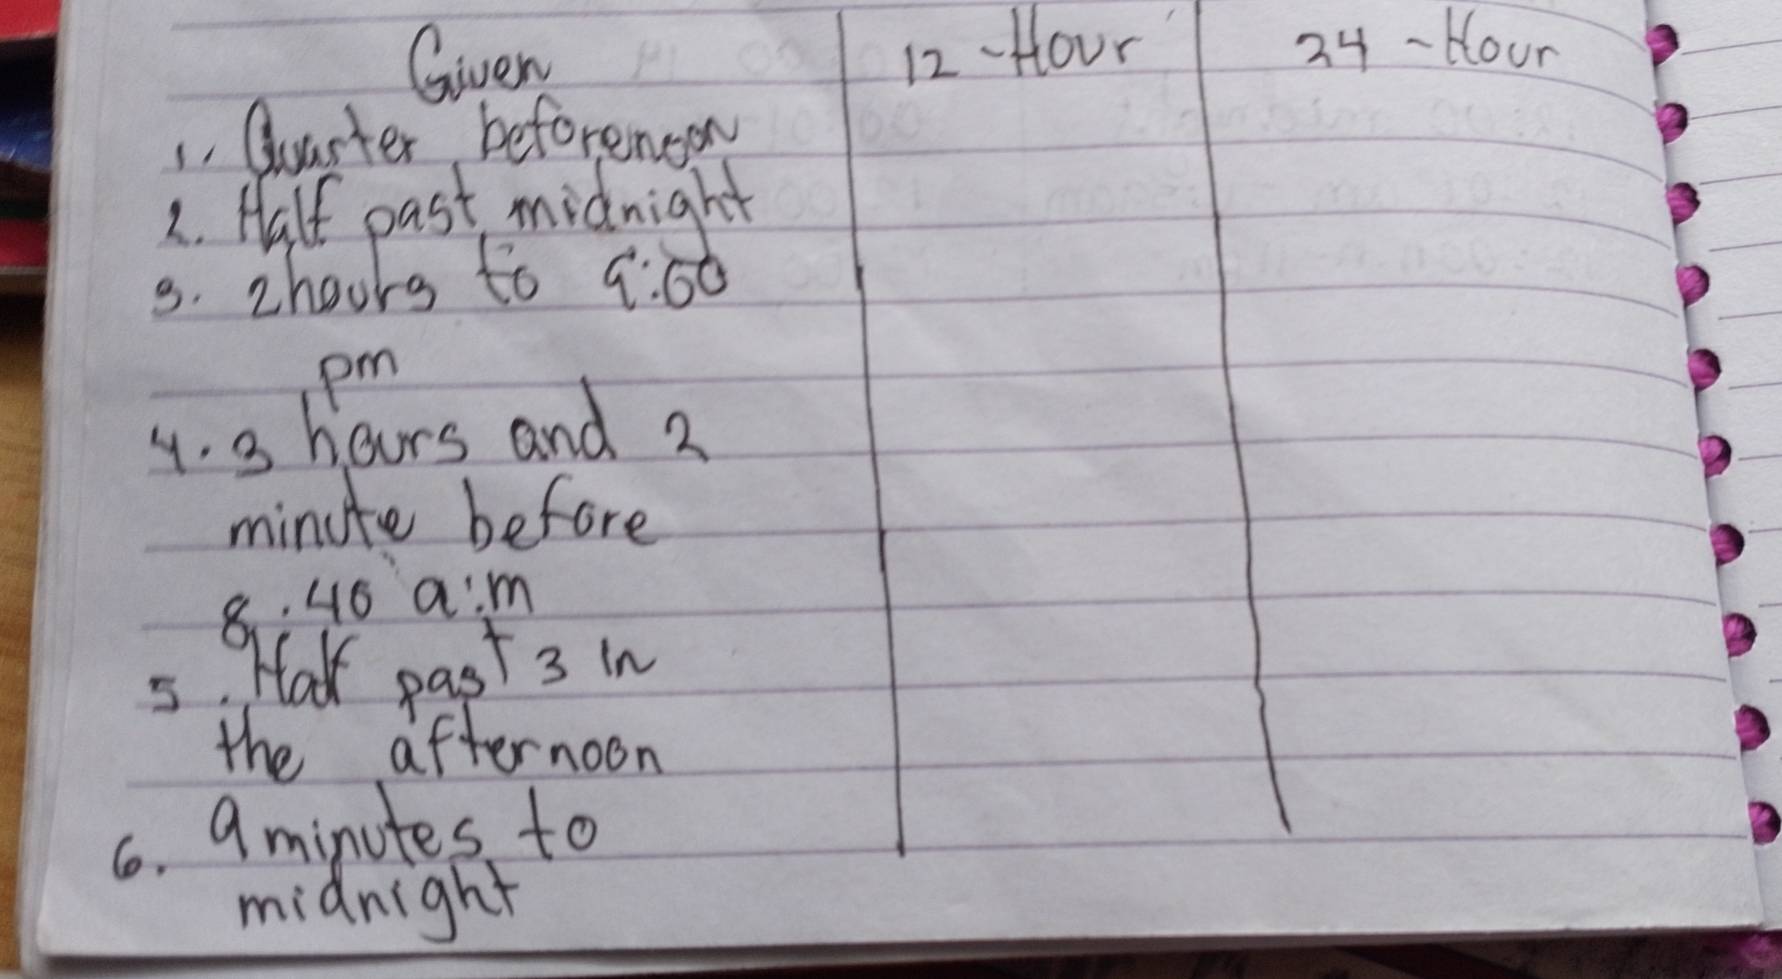 Given 12-Hour 24-Hour
1. Quarter beforenoon
2. Half past midnight
3. 2hours to 9:00
pm
4. 3 hours and 2
minute before
8.40 a.m
5. Half past 3 in
the afternoon
6. 9minutes to
midnight